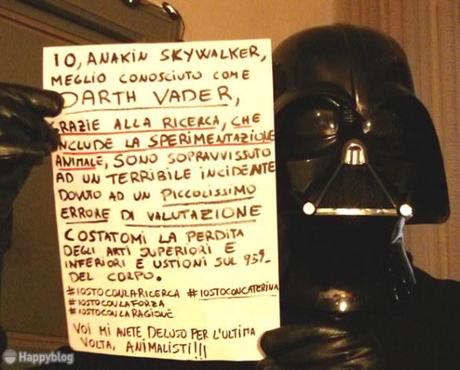 IO, ANAKIN SKYWALKER,
MEGLIO CONOSCIUTO COME
DARTH VADER,
GRAZIE ALLA RICERCA, CHE
INCLUDE LA SPERIMENTAZIONE
ANIMALE, SONO SOPRAVVISSUTO
AD UN TERRIBILE INCIDENTE
DOVUTO AD UN PICCOLISSIMO
ERRORE DI VALUTAZIONE
COSTATOMI LA PERDITA
DEGLI ARTI SUPERIORI E
INFERIORI E USTIONI SUL 93%
DEL CORPO.
#IOSTOCONLARICERCA #IOSTOCONCATERINA
#IOSTOCONLAFORZA
#IOSTOCONLARAGIONE
VOI MI AVETE DELUSO PER L'ULTIMA
VOLTA, ANIMALISTI!!!
Happyblog